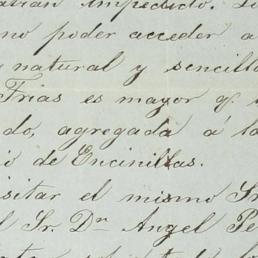 impedido. 
no poder acceder a
natural y sencillo
Frias es mayor q.
do, agregada á la
io de Encinillas.
sitar el mismo Sr
l Sr. Dn Angel Pe